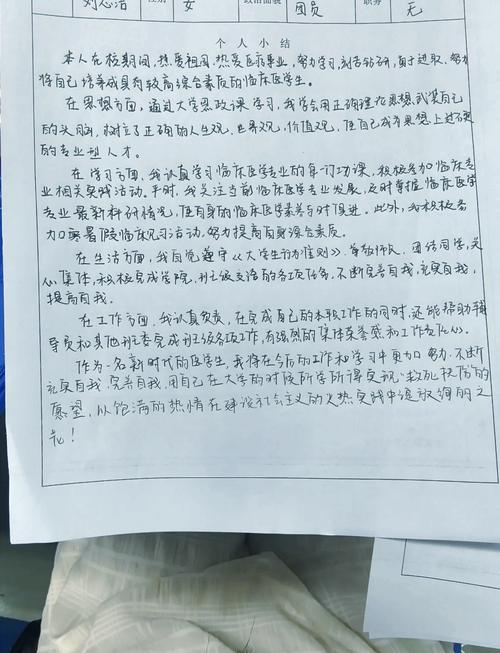 刘志洁 性别 女 政治面貌 团员 职务 无
个人小结
本人在校期间,热爱祖国,热爱医疗事业,努力学习,刻苦钻研,勇于进取,努力
将自己培养成具有较高综合素质的临床医学生。
在思想方面,通过大学思政课学习,我学会用正确理论思想武装自己
的头脑,树立了正确的人生观,世界观,价值观,使自己成为思想上过硬
的专业型人才。
在学习方面,我认真学习临床医学专业的每门功课,积极参加临床专
业相关实践活动。平时,我关注当前临床医学专业发展,及时掌握临床医学
专业最新科研情况,使自身的临床医学素养与时俱进。此外,我积极参
加寒暑假临床见习活动,努力提高自身综合素质。
在生活方面,我自觉遵守《大学生行为准则》,尊敬师长,团结同学,关
心集体,积极完成学院,班级交给的各项任务,不断完善自我,充实自我,
提高自我。
在工作方面,我认真负责,在完成自己的本职工作的同时,还能帮助辅
导员和其他班委完成班级各项工作,有强烈的集体荣誉感和工作责任心。
作为一名新时代的医学生,我将在今后的工作和学习中更加努力,不断
充实自我,完善自我,用自己在大学的时候所学所得实现“救死扶伤”的
愿望,以饱满的热情在建设社会主义的火热实践中绽放绚丽之
花!